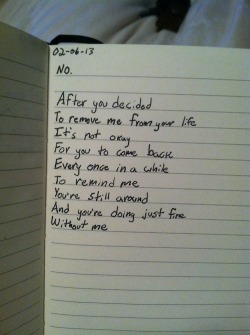 02-06-13
No.
After you decided
To remove me from your life
It's not okay
For you to come back
Every once in a while
To remind me
You're still around
And you're doing just fine
Without me